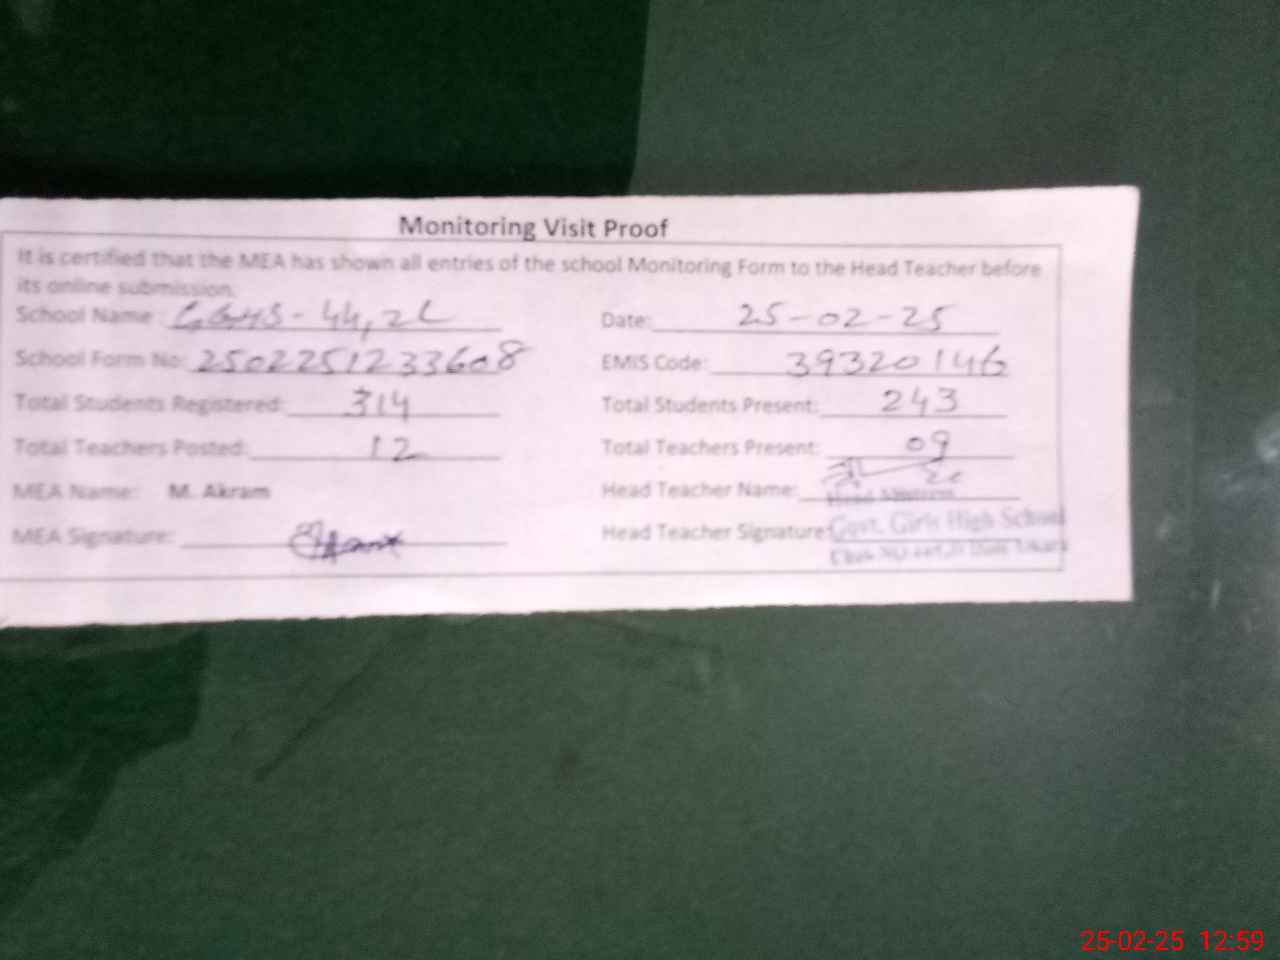 Monitoring Visit Proof
It is certified that the MEA has shown all entries of the school Monitoring Form to the Head Teacher before
its online submission.
School Name: GGHS - 44, 2L Date: 25-02-25
School Form No: 2502251233608 EMIS Code: 39320146
Total Students Registered: 314 Total Students Present: 243
Total Teachers Posted: 12 Total Teachers Present: 09
MEA Name: M. Akram Head Teacher Name:
Head Mistress
MEA Signature: Head Teacher Signature:
Govt. Girls High School
25-02-25 12:59